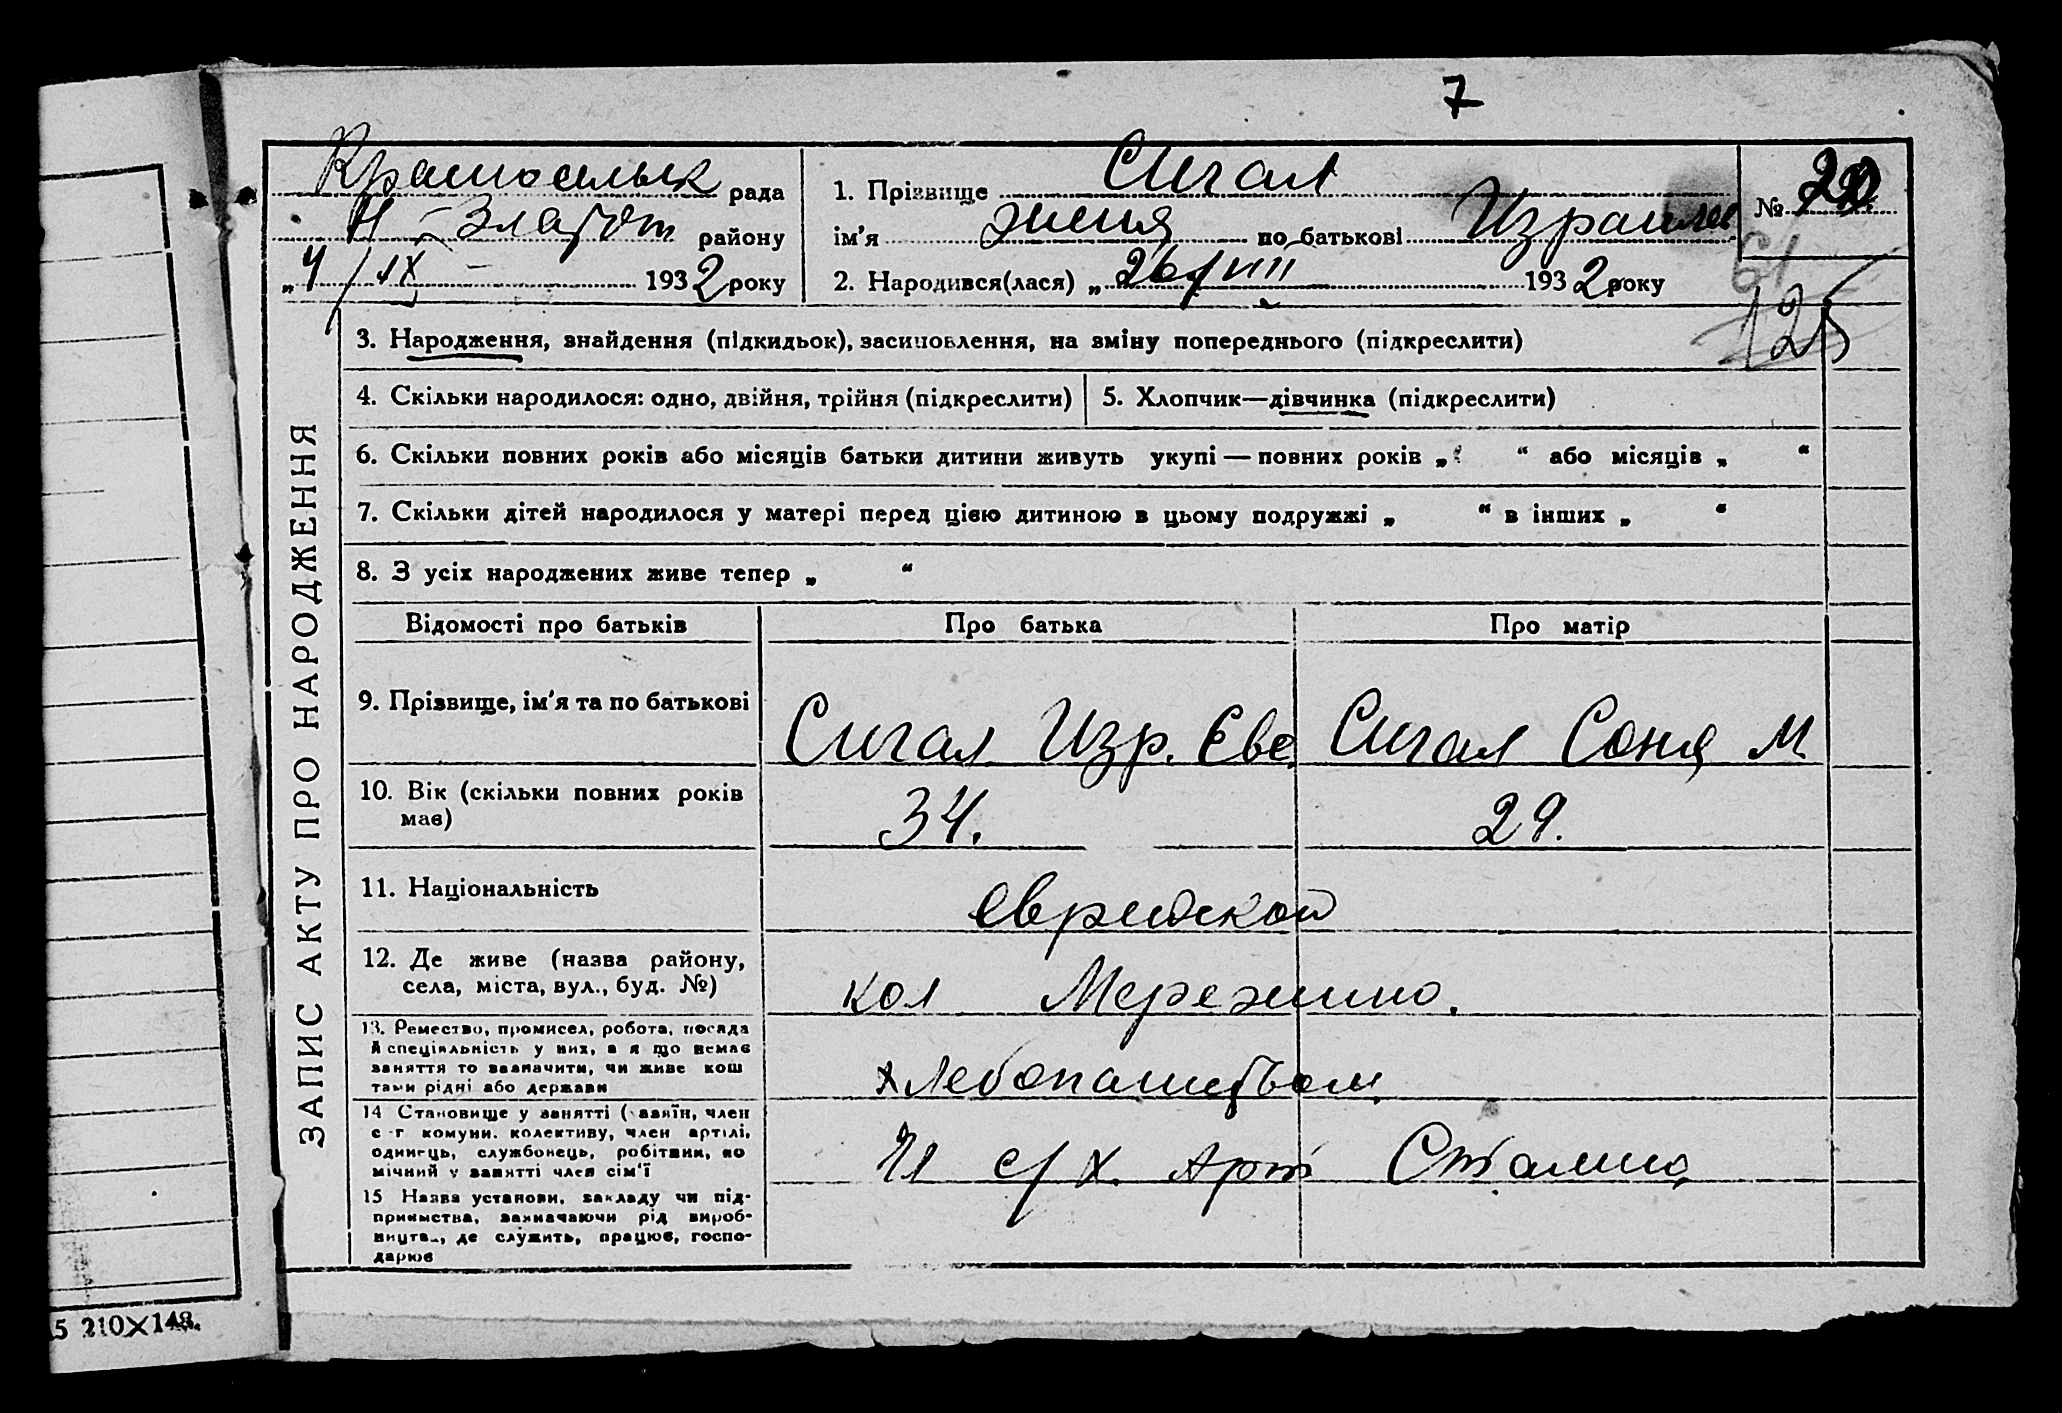 7
Красносельск рада
Н-Златоп району
„4/IX 1932 року
1. Прізвище Сигал
ім'я Женя по батькові Израилев
2. Народився(лася) „26/VIII 1932 року
№ 20
61
125
ЗАПИС АКТУ ПРО НАРОДЖЕННЯ
3. Народження, знайдення (підкидьок), засиновлення, на зміну попереднього (підкреслити)
4. Скільки народилося: одно, двійня, трійня (підкреслити)
5. Хлопчик—дівчинка (підкреслити)
6. Скільки повних років або місяців батьки дитини живуть укупі — повних років „ “ або місяців „ “
7. Скільки дітей народилося у матері перед цією дитиною в цьому подружжі „ “ в інших „ “
8. З усіх народжених живе тепер „ “
Відомості про батьків Про батька Про матір
9. Прізвище, ім'я та по батькові Сигал Изр. Евс. Сигал Соня М
10. Вік (скільки повних років
має) 34. 29.
11. Національність еврейской
12. Де живе (назва району,
села, міста, вул., буд. №) кол Мережино.
13. Ремество, промисел, робота, посада
й спеціяльність у них, а я що немає
заняття то зазначити, чи живе кош
тами рідні або держави
хлебопашеством
14 Становище у занятті (хазяїн, член
с-г комуни, колективу, член артілі,
одинець, службовець, робітник, по
мічний у занятті член сім'ї
Чл с/х. Арт Сталина
15 Назва установи, закладу чи під-
приємства, зазначаючи рід вироб-
ництва, де служить, працює, госпо-
дарює
5 210×148.